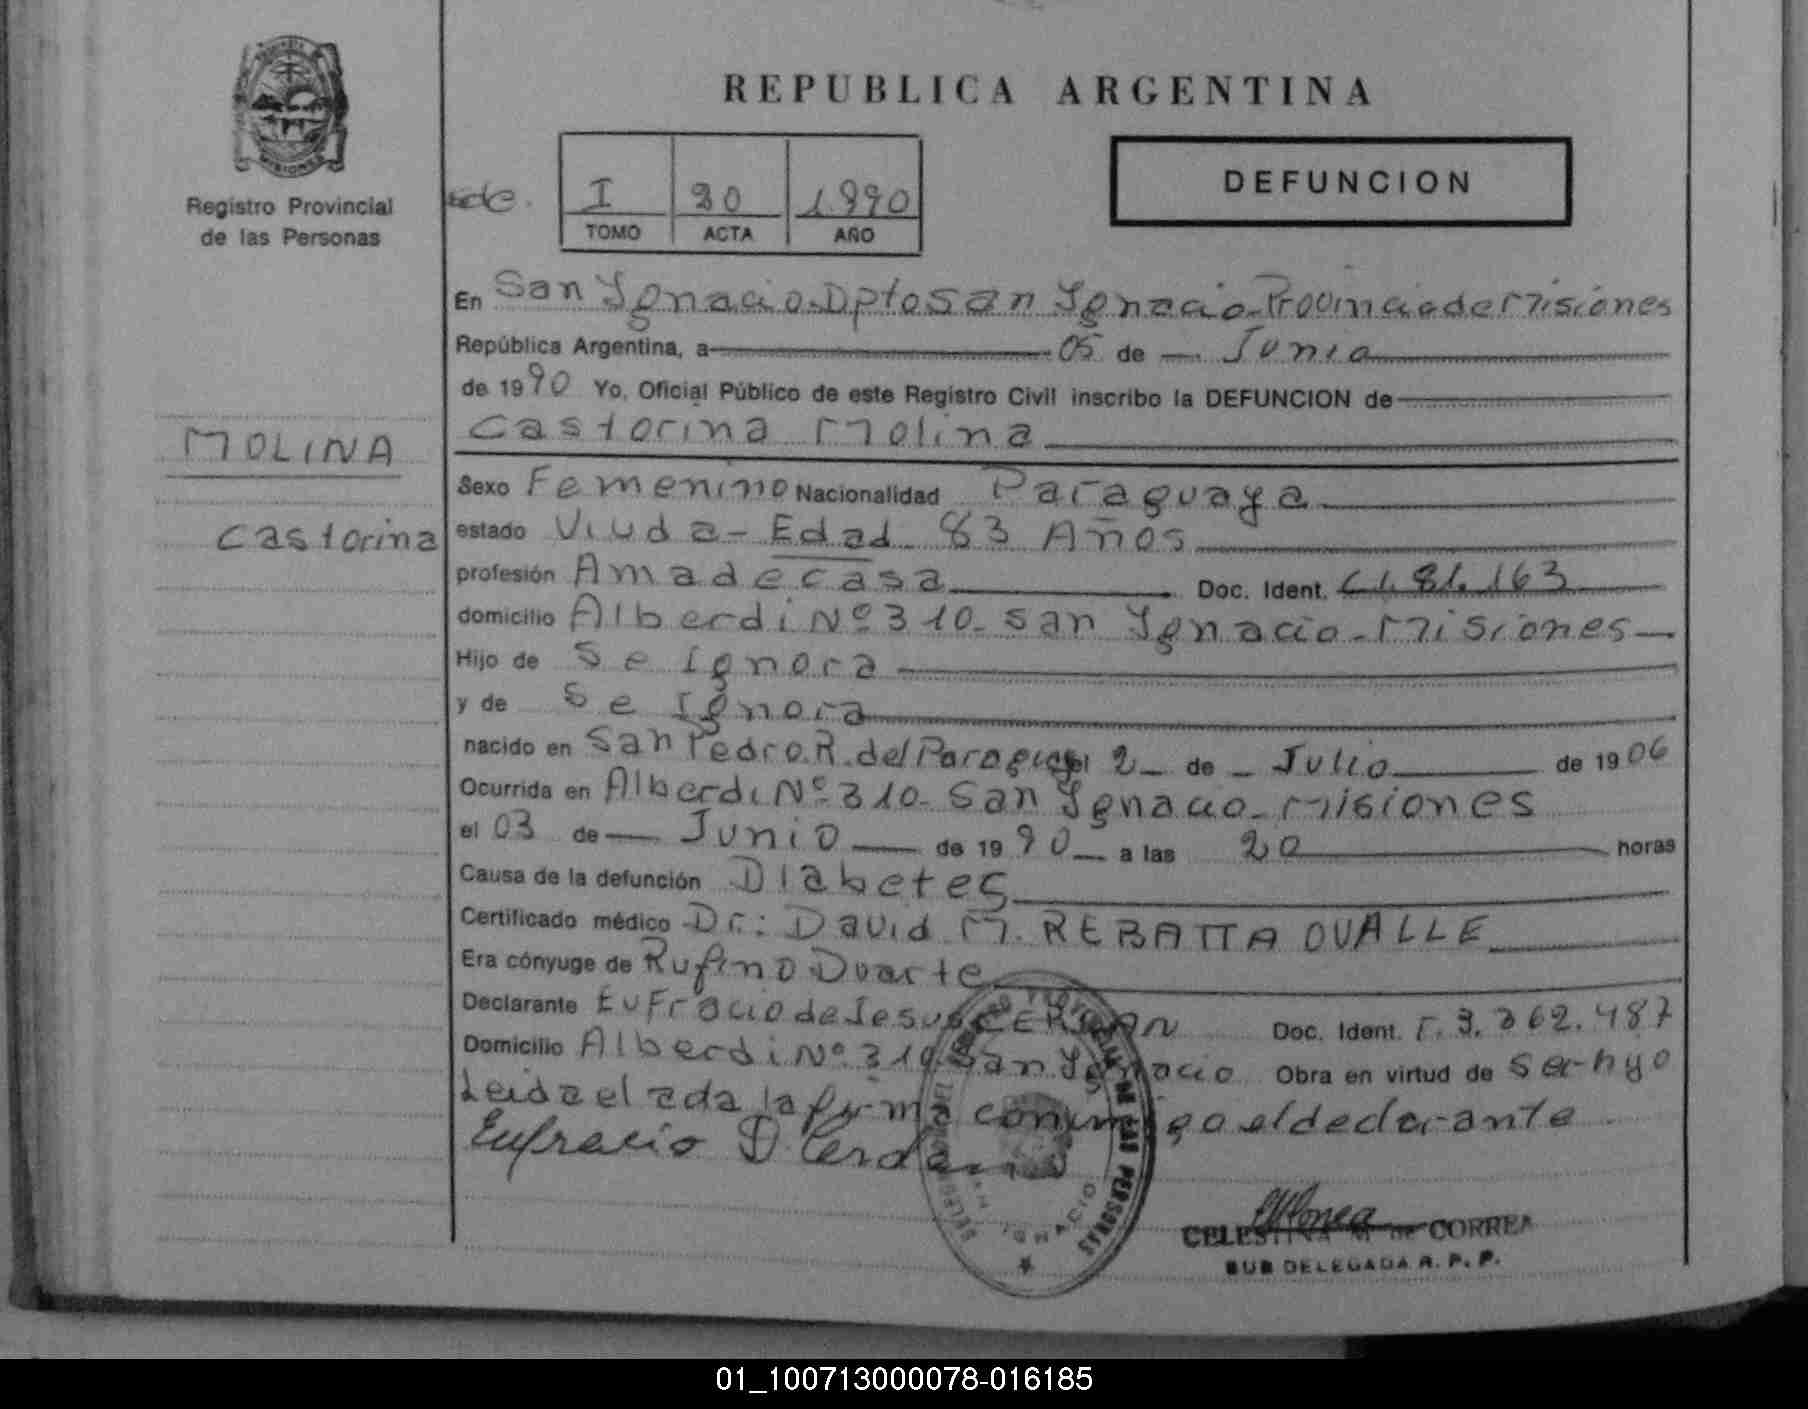 REPUBLICA ARGENTINA
MISIONES
Registro Provincial
de las Personas
I 1990
TOMO ACTA AÑO
DEFUNCION
En San Ignacio Dpto San Ignacio Provincia de Misiones
República Argentina, a 05 de Junio
de 1990 Yo, Oficial Público de este Registro Civil inscribo la DEFUNCION de
Castorina Molina
MOLINA
Castorina
Sexo Femenino Nacionalidad Paraguaya
estado Viuda - Edad 83 Años
profesión Ama de casa Doc. Ident.
domicilio Alberdi Nº 310 - San Ignacio - Misiones
Hijo de Se Ignora
y de Se Ignora
nacido en San Pedro R. del Paraguay el 2 de Julio de 1906
Ocurrida en Alberdi Nº 310 - San Ignacio - Misiones
el 03 de Junio de 1990 a las 20 horas
Causa de la defunción Diabetes
Certificado médico Dr: David M. REBATTA OVALLE
Era cónyuge de Rufino Duarte
Declarante Eufracio de Jesus Doc. Ident.
Domicilio Alberdi Nº 310 San Ignacio Obra en virtud de Ser hijo
Leida el acta la firma conmigo el declarante
Eufracio D
CELESTINA M DE CORREA
SUB DELEGADA R. P. P.
01_100713000078-016185